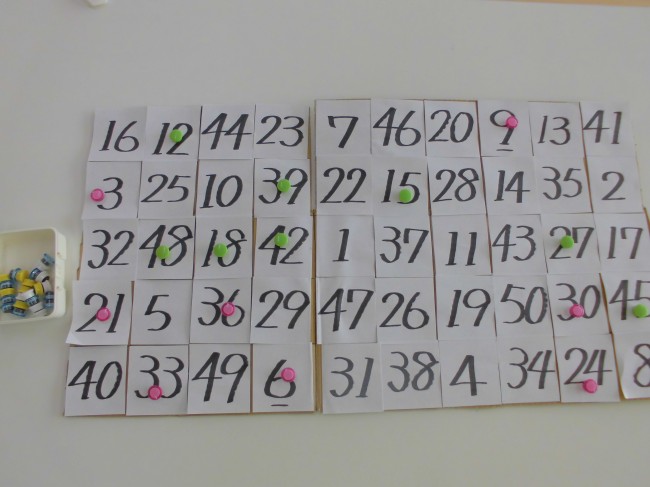 16 12 44 23 7 46 20 9 13 41
3 25 10 39 22 15 28 14 35 2
32 48 18 42 1 37 11 43 27 17
21 5 36 29 47 26 19 50 30 45
40 33 49 6 31 38 4 34 24 8